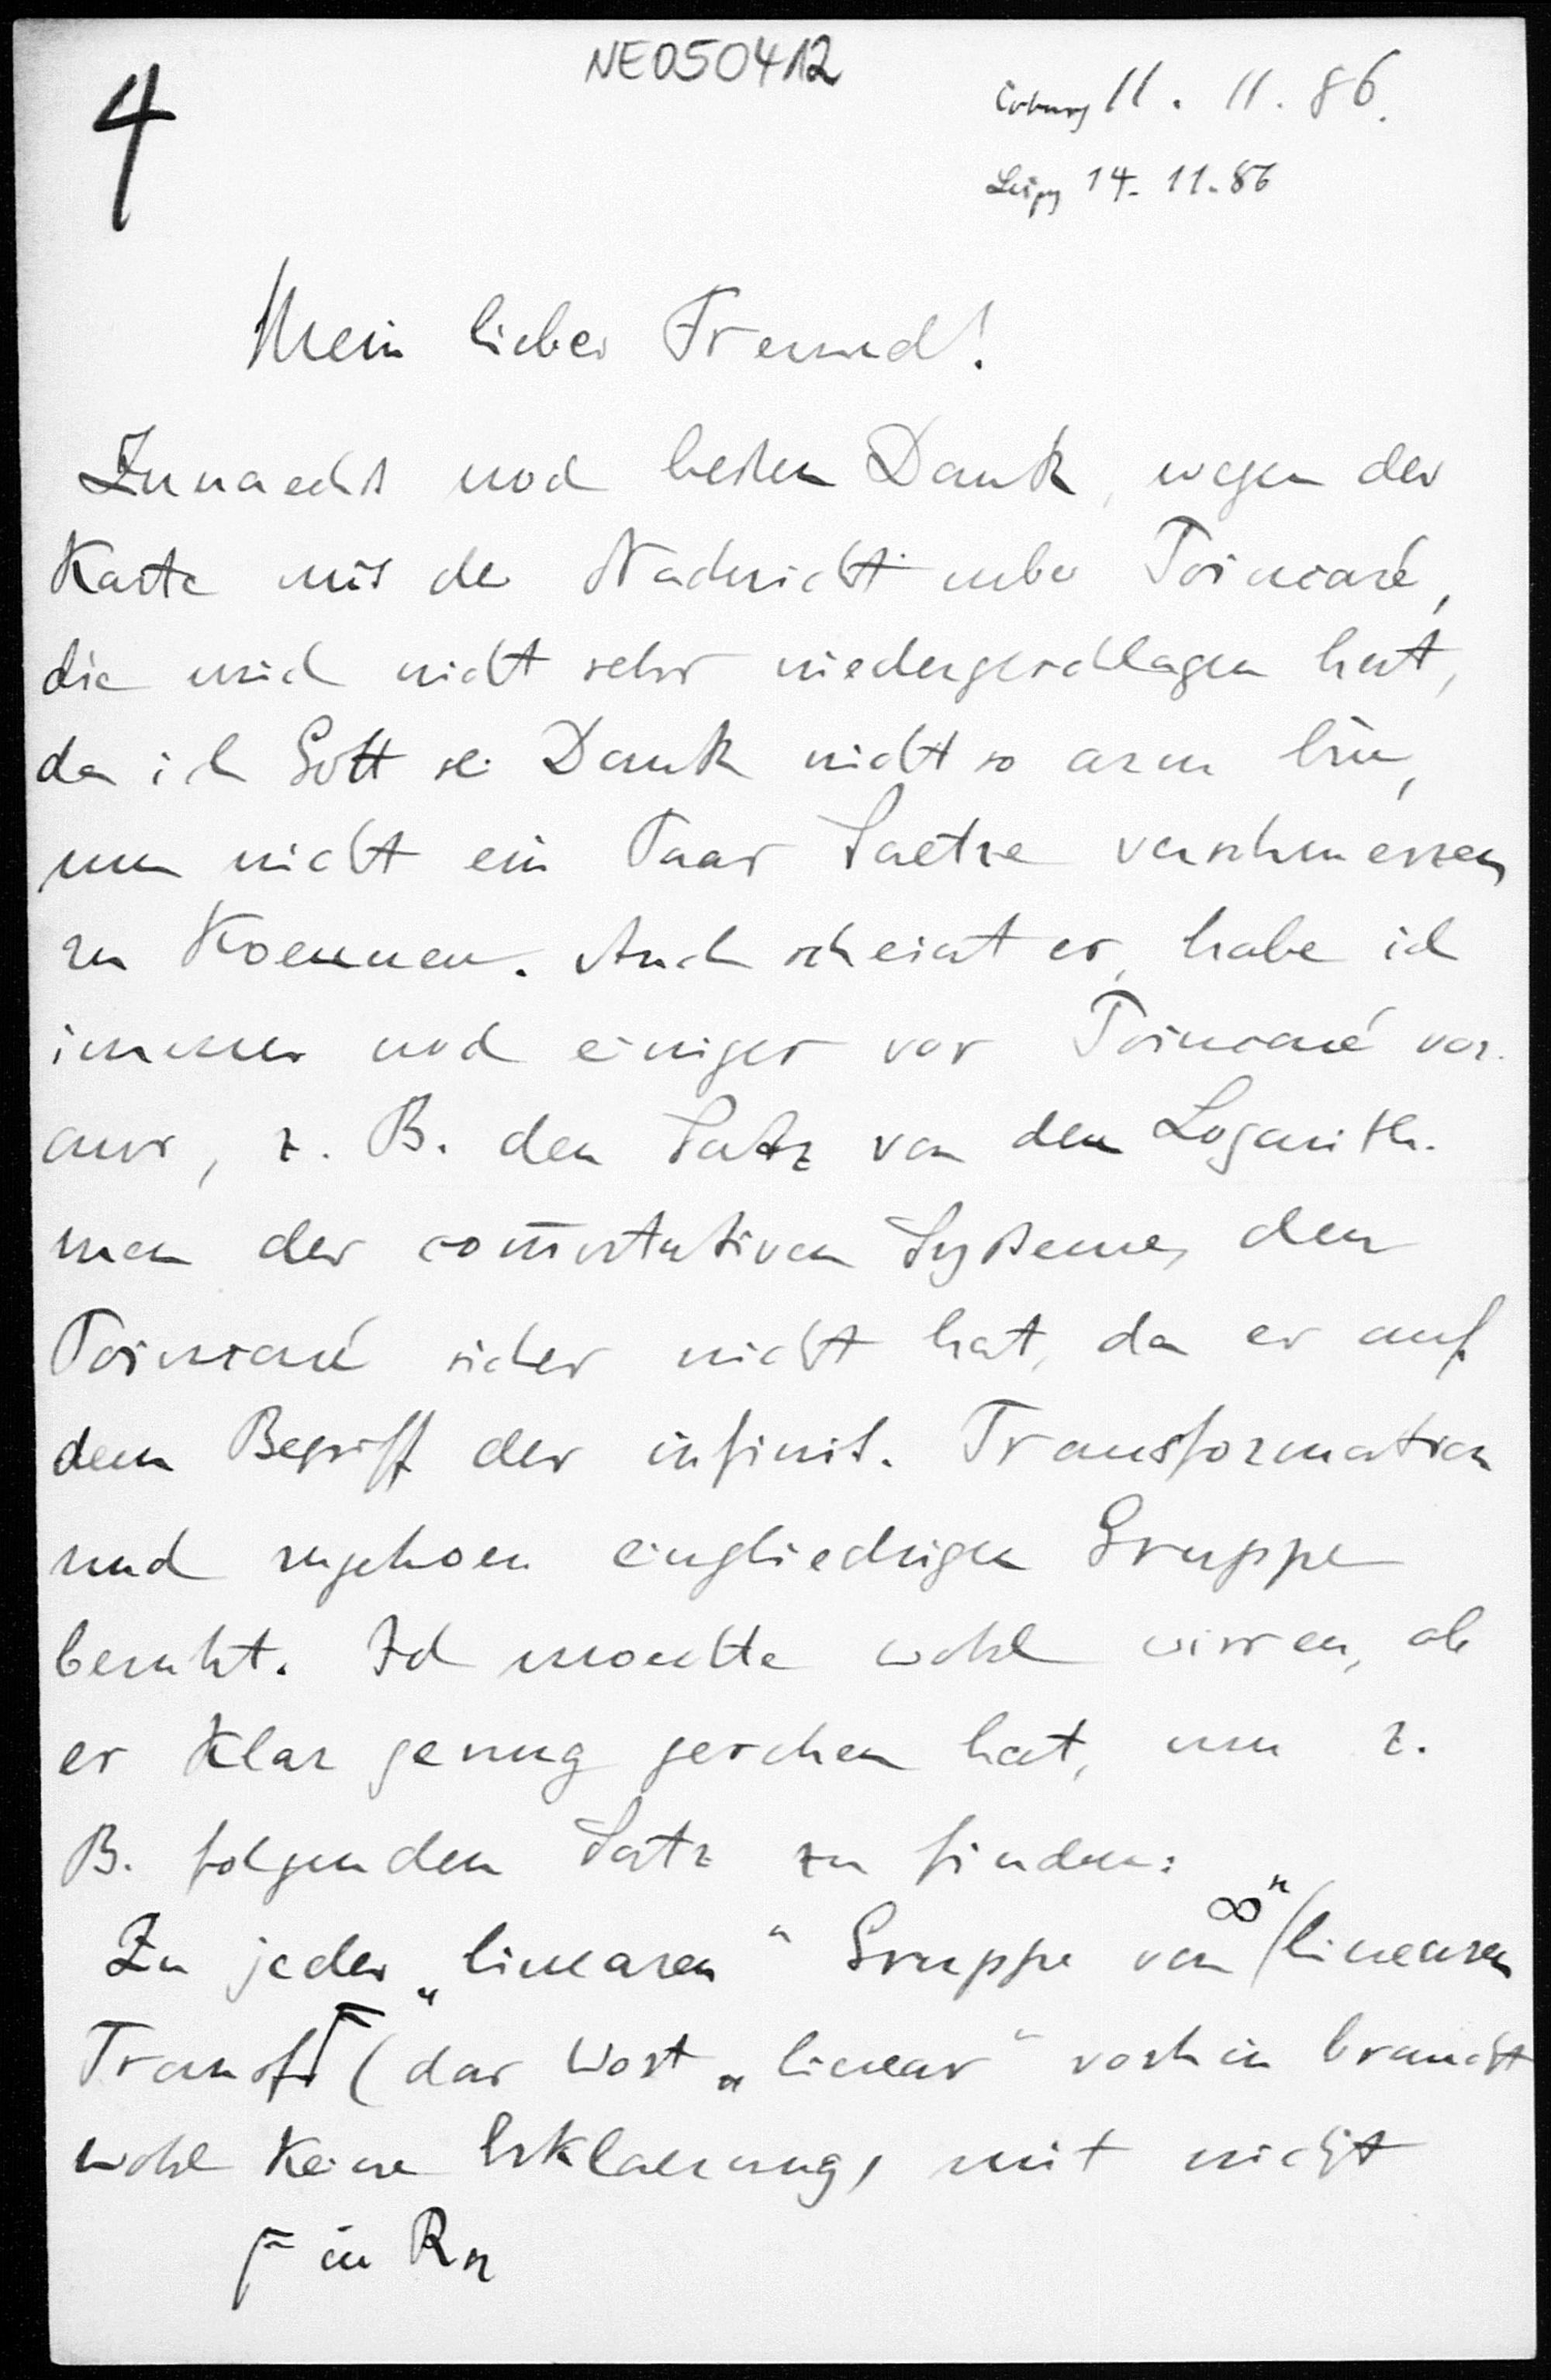 NE050412
4
Coburg 11. 11. 86.
Leipzg 14. 11. 86
Mein lieber Freund!
Zunaechst noch besten Dank, wegen der
Karte mit der Nachricht ueber Poincaré,
die mich nicht sehr niedergeschlagen hat,
da ich Gott sei Dank nicht so arm bin,
um nicht ein Paar Saetze verschmerzen
zu Koennen. Auch scheint es, habe ich
immer noch einiges vor Poincaré vor-
aus, z. B. den Satz von den Logarith-
men der com̅utativen Systeme, den
Poincaré sicher nicht hat, da er auf
dem Begriff der infinit. Transformation
und zugehoer. eingliedrigen Gruppe
beruht. Ich moechte wohl wissen, ob
er Klar genug gesehen hat, um z.
B. folgenden Satz zu finden:
Zu jeder „linearen“ Gruppe von ∞ⁿ linearen
Transf. ( das Wort „linear“ vorhin braucht
wohl Keine Erklaerung, mit nicht
in Rn